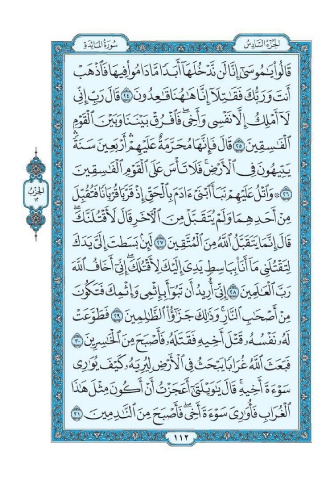 سُورَةُ المَائِدَةِ
الجُزْءُ السَّادِسُ
قَالُواْ يَٰمُوسَىٰٓ إِنَّا لَن نَّدۡخُلَهَآ أَبَدٗا مَّا دَامُواْ فِيهَا فَٱذۡهَبۡ
أَنتَ وَرَبُّكَ فَقَٰتِلَآ إِنَّا هَٰهُنَا قَٰعِدُونَ ٢٤ قَالَ رَبِّ إِنِّي
لَآ أَمۡلِكُ إِلَّا نَفۡسِي وَأَخِيۖ فَٱفۡرُقۡ بَيۡنَنَا وَبَيۡنَ ٱلۡقَوۡمِ
ٱلۡفَٰسِقِينَ ٢٥ قَالَ فَإِنَّهَا مُحَرَّمَةٌ عَلَيۡهِمۡۛ أَرۡبَعِينَ سَنَةٗۛ
يَتِيهُونَ فِي ٱلۡأَرۡضِۚ فَلَا تَأۡسَ عَلَى ٱلۡقَوۡمِ ٱلۡفَٰسِقِينَ
٢٦ ۞ وَٱتۡلُ عَلَيۡهِمۡ نَبَأَ ٱبۡنَيۡ ءَادَمَ بِٱلۡحَقِّ إِذۡ قَرَّبَا قُرۡبَانٗا فَتُقُبِّلَ
مِنۡ أَحَدِهِمَا وَلَمۡ يُتَقَبَّلۡ مِنَ ٱلۡأٓخَرِ قَالَ لَأَقۡتُلَنَّكَۖ
قَالَ إِنَّمَا يَتَقَبَّلُ ٱللَّهُ مِنَ ٱلۡمُتَّقِينَ ٢٧ لَئِنۢ بَسَطتَ إِلَيَّ يَدَكَ
لِتَقۡتُلَنِي مَآ أَنَا۠ بِبَاسِطٖ يَدِيَ إِلَيۡكَ لِأَقۡتُلَكَۖ إِنِّيٓ أَخَافُ ٱللَّهَ
رَبَّ ٱلۡعَٰلَمِينَ ٢٨ إِنِّيٓ أُرِيدُ أَن تَبُوٓأَ بِإِثۡمِي وَإِثۡمِكَ فَتَكُونَ
مِنۡ أَصۡحَٰبِ ٱلنَّارِۚ وَذَٰلِكَ جَزَٰٓؤُاْ ٱلظَّٰلِمِينَ ٢٩ فَطَوَّعَتۡ
لَهُۥ نَفۡسُهُۥ قَتۡلَ أَخِيهِ فَقَتَلَهُۥ فَأَصۡبَحَ مِنَ ٱلۡخَٰسِرِينَ ٣٠
فَبَعَثَ ٱللَّهُ غُرَابٗا يَبۡحَثُ فِي ٱلۡأَرۡضِ لِيُرِيَهُۥ كَيۡفَ يُوَٰرِي
سَوۡءَةَ أَخِيهِۚ قَالَ يَٰوَيۡلَتَىٰٓ أَعَجَزۡتُ أَنۡ أَكُونَ مِثۡلَ هَٰذَا
ٱلۡغُرَابِ فَأُوَٰرِيَ سَوۡءَةَ أَخِيۖ فَأَصۡبَحَ مِنَ ٱلنَّٰدِمِينَ ٣١
١١٢
الحِزْب